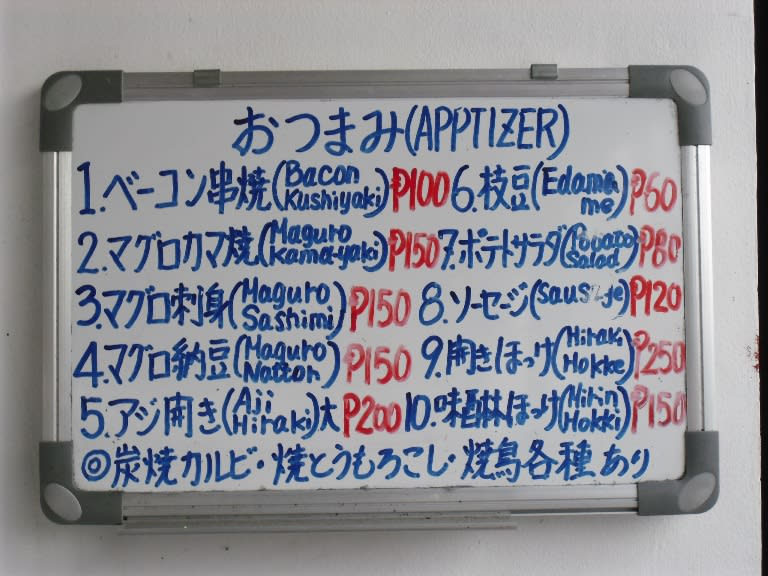 おつまみ(APPTIZER)
1.ベーコン串焼(Bacon Kushiyaki) ₱100
6.枝豆(Edamame) ₱60
2.マグロカマ焼(Maguro Kama-yaki) ₱150
7.ポテトサラダ(Potapo Salad) ₱80
3.マグロ刺身(Maguro Sashimi) ₱150
8.ソーセージ(sausage) ₱120
4.マグロ納豆(Maguro Natton) ₱150
9.開きほっけ(Hiraki Hokke) ₱250
5.アジ開き(Aji Hiraki)大 ₱200
10.味醂ほっけ(Mirin Hokki) ₱150
◎炭焼カルビ・焼とうもろこし・焼鳥各種あり